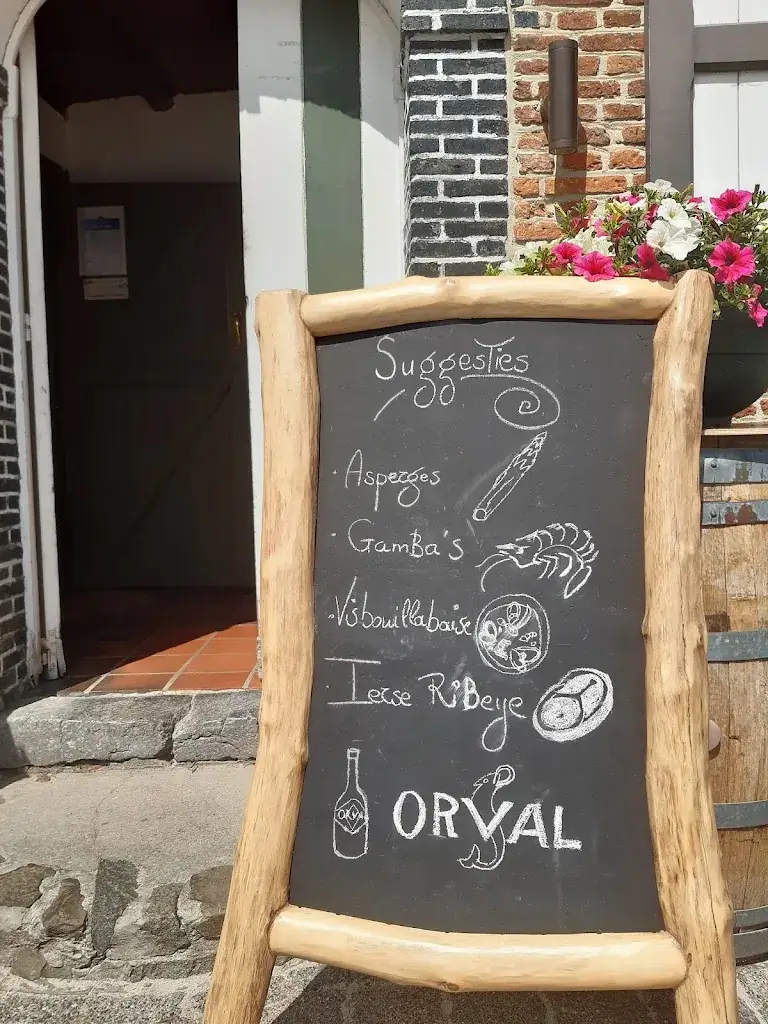 Suggesties
· Asperges
· Gamba's
· Visbouillabaise
· Ierse RiBeye
ORVAL